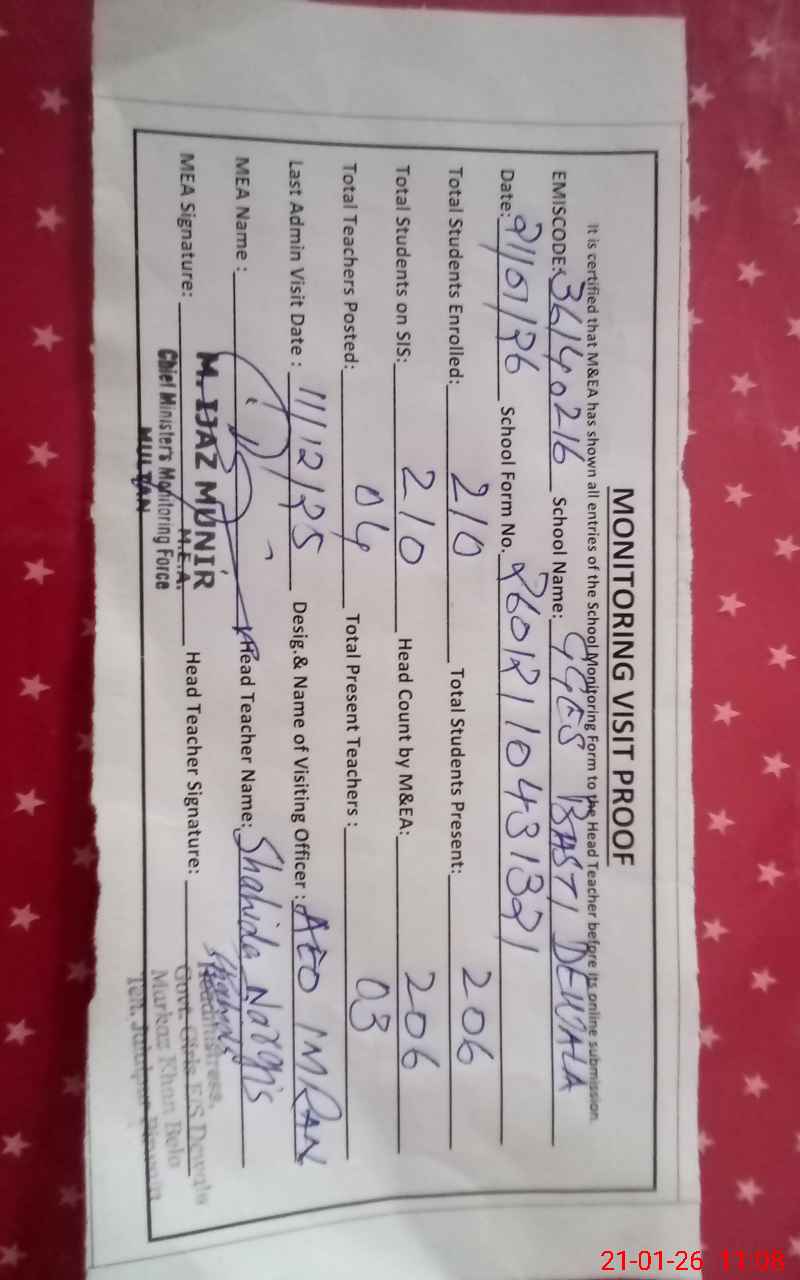 MONITORING VISIT PROOF
It is certified that M&EA has shown all entries of the School Monitoring Form to the Head Teacher before its online submission.
EMISCODE: 36140216 School Name: GGES BASTI DEWALA
Date: 21/01/26 School Form No. 26012110431321
Total Students Enrolled: 210 Total Students Present: 206
Total Students on SIS: 210 Head Count by M&EA: 206
Total Teachers Posted: 04 Total Present Teachers : 03
Last Admin Visit Date : 11/12/25 Desig.& Name of Visiting Officer : AEO IMRAN
MEA Name : Head Teacher Name: Shahida Nargis
MEA Signature: Head Teacher Signature: Shahida
M. IJAZ MUNIR
M.E.A.
Chief Minister's Monitoring Force
MULTAN
Headmistress,
Govt. Girls E/S Dewala
Markaz Khan Bela
Teh. Jalalpur
21-01-26 11:08